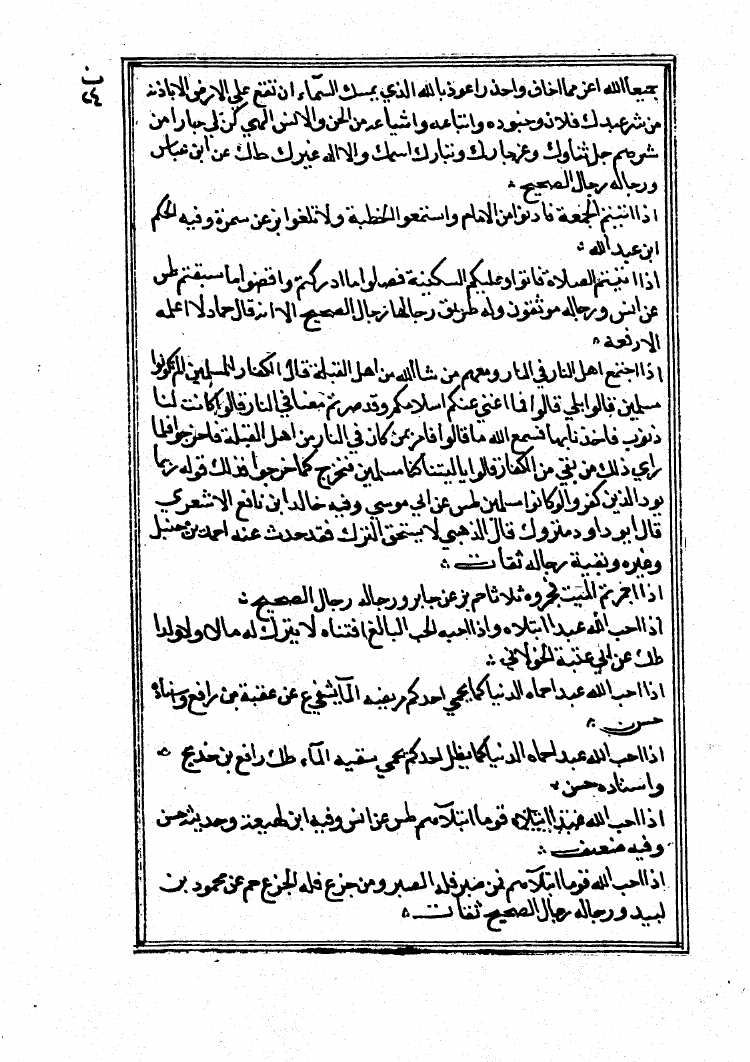 ن
٢٤
جميعا الله اعز مما اخاف واحذر اعوذ بالله الذي يمسك السمآء ان تقع علي الارض الا باذنه
من شر عبدك فلان وجنوده واتباعه واشياعه من الجن والانس الهي كن لي جارا من
شرهم جل ثناوك وعز جارك وتبارك اسمك ولا اله غيرك طك عن ابن عباس
ورجاله رجال الصحيح
اذا اتيتم الجمعة فادنوا من الامام واستمعوا الخطبة ولا تلغوا بز عن سمرة وفيه الحكم
ابن عبد الله
اذا اتيتم الصلاه فاتوا وعليكم السكينة فصلوا ما ادركتم واقضوا ما سبقتم طس
عن انس ورجاله موثقون وله طريق رجالها رجال الصحيح الا انه قال حماد لا اعلمه
الا رفعه
اذا اجتمع اهل النار في النار ومعهم من شا الله من اهل القبلة قال الكفار للمسلمين الم تكونوا
مسلمين قالوا بلي قالوا فما اغني عنكم اسلامكم وقد صرتم معنا في النار قالوا كانت لنا
ذنوب فاخذنا بها فسمع الله ما قالوا فامر بمن كان في النار من اهل القبلة فاخرجوا فلما
راي ذلك من بقي من الكفار قالوا يا ليتنا كنا مسلمين فنخرج كما خرجوا فذلك قوله ربما
يود الذين كفروا لو كانوا مسلمين طس عن ابي موسي وفيه خالد ابن نافع الاشعري
قال ابو داود متروك قال الذهبي لا يستحق الترك فقد حدث عنه احمد بن حنبل
وغيره وبقية رجاله ثقات
اذا اجمرتم الميت فجمروه ثلاثا حم بز عن جابر ورجاله رجال الصحيح
اذا احب الله عبدا ابتلاه واذا احبه الحب البالغ افتناه لا يترك له مالا ولا ولدا
طك عن ابي عتبة الخولاني
اذا احب الله عبدا حماه الدنيا كما يحمي احدكم مريضه المآ يشفي ع عن عقبة بن رافع وسناده
حسن
اذا احب الله عبدا حماه الدنيا كما يظل احدكم يحمي سقيمه المآء طك رافع بن خديج
واسناده حسن
اذا احب الله قوما ابتلآهم طس عن انس وفيه ابن لهيعة وحديثه حسن
وفيه ضعف
اذا احب الله قوما ابتلآهم فمن صبر فله الصبر ومن جزع فله الجزع حم عن محمود بن
لبيد ورجاله رجال الصحيح ثقات